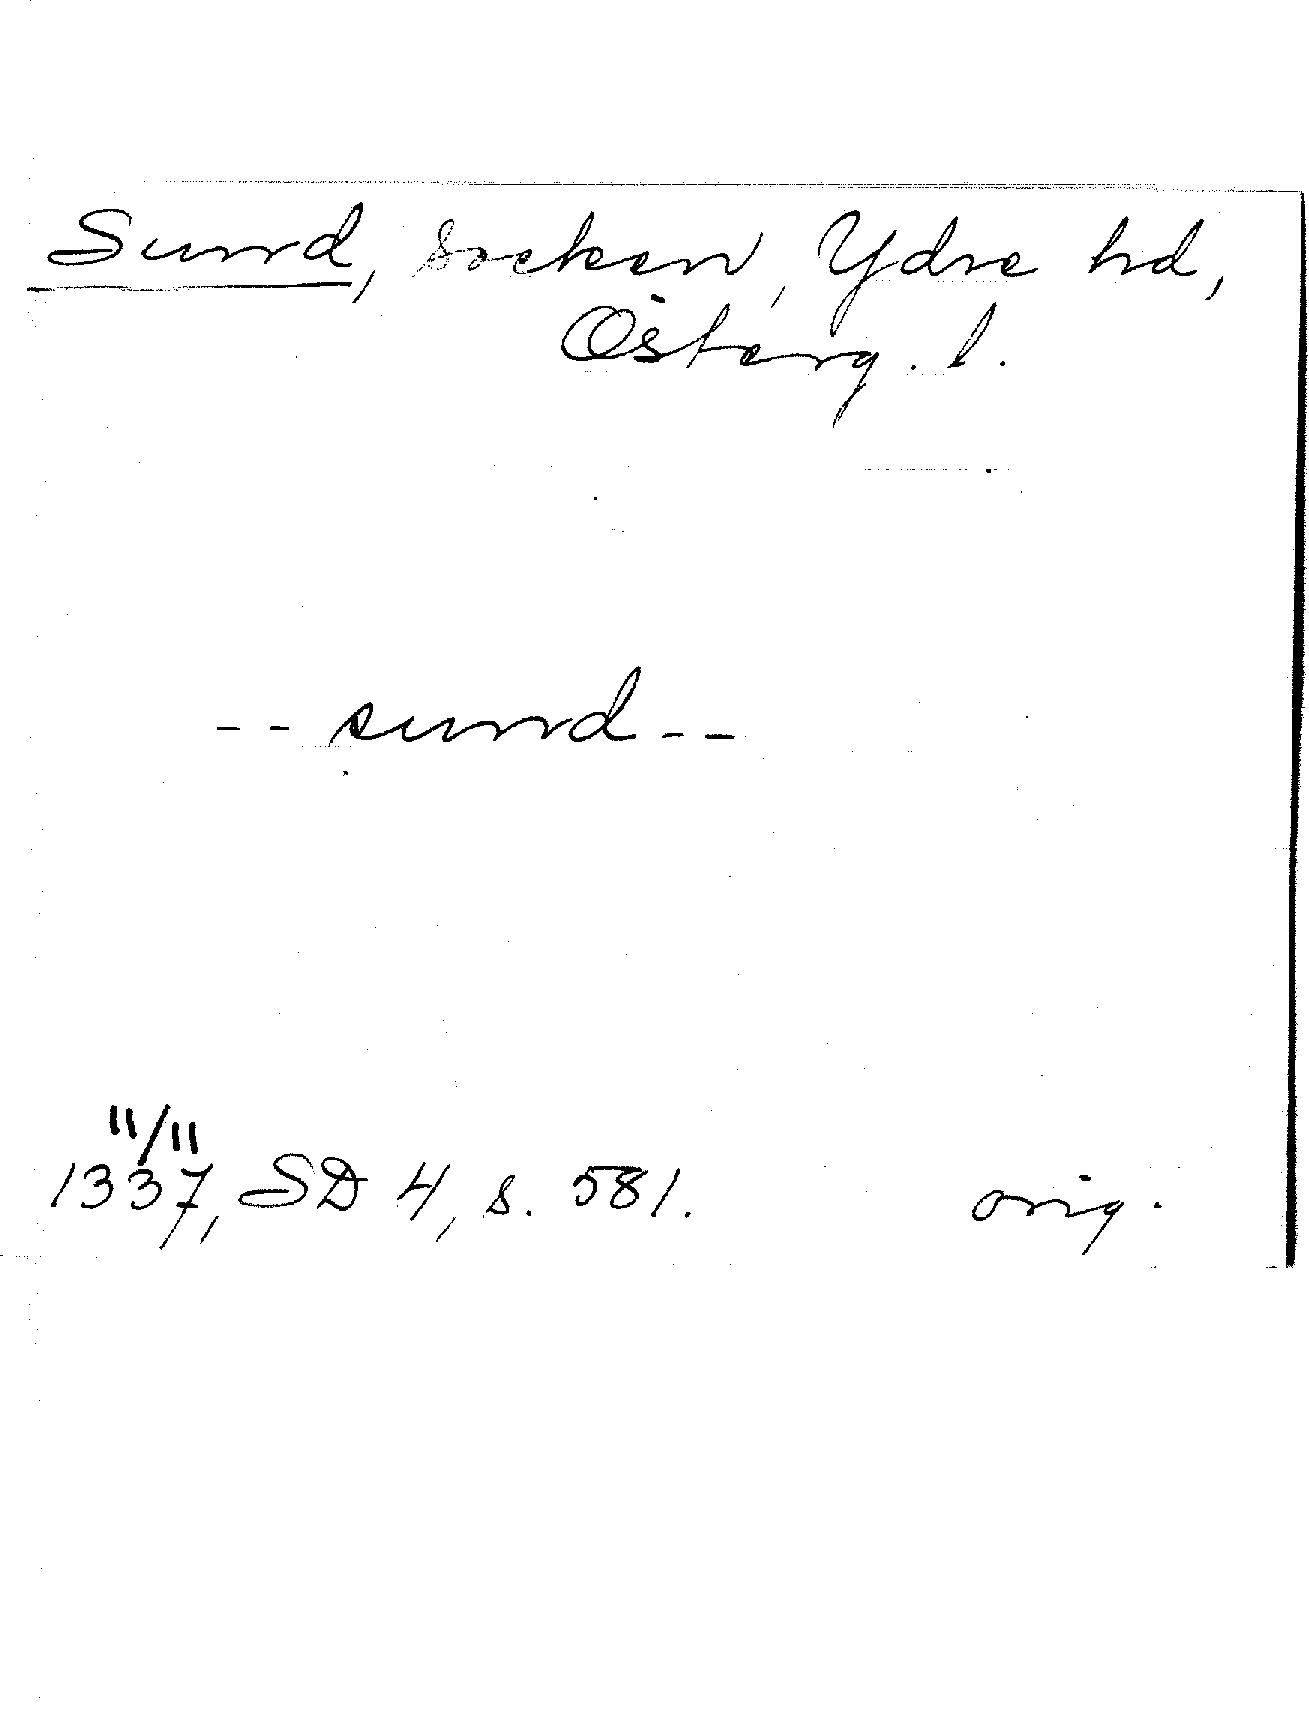 Sund, socken, Ydre hd,
Österg. l.
-- sund --
11/11
1337, SD 4, s. 581. orig.